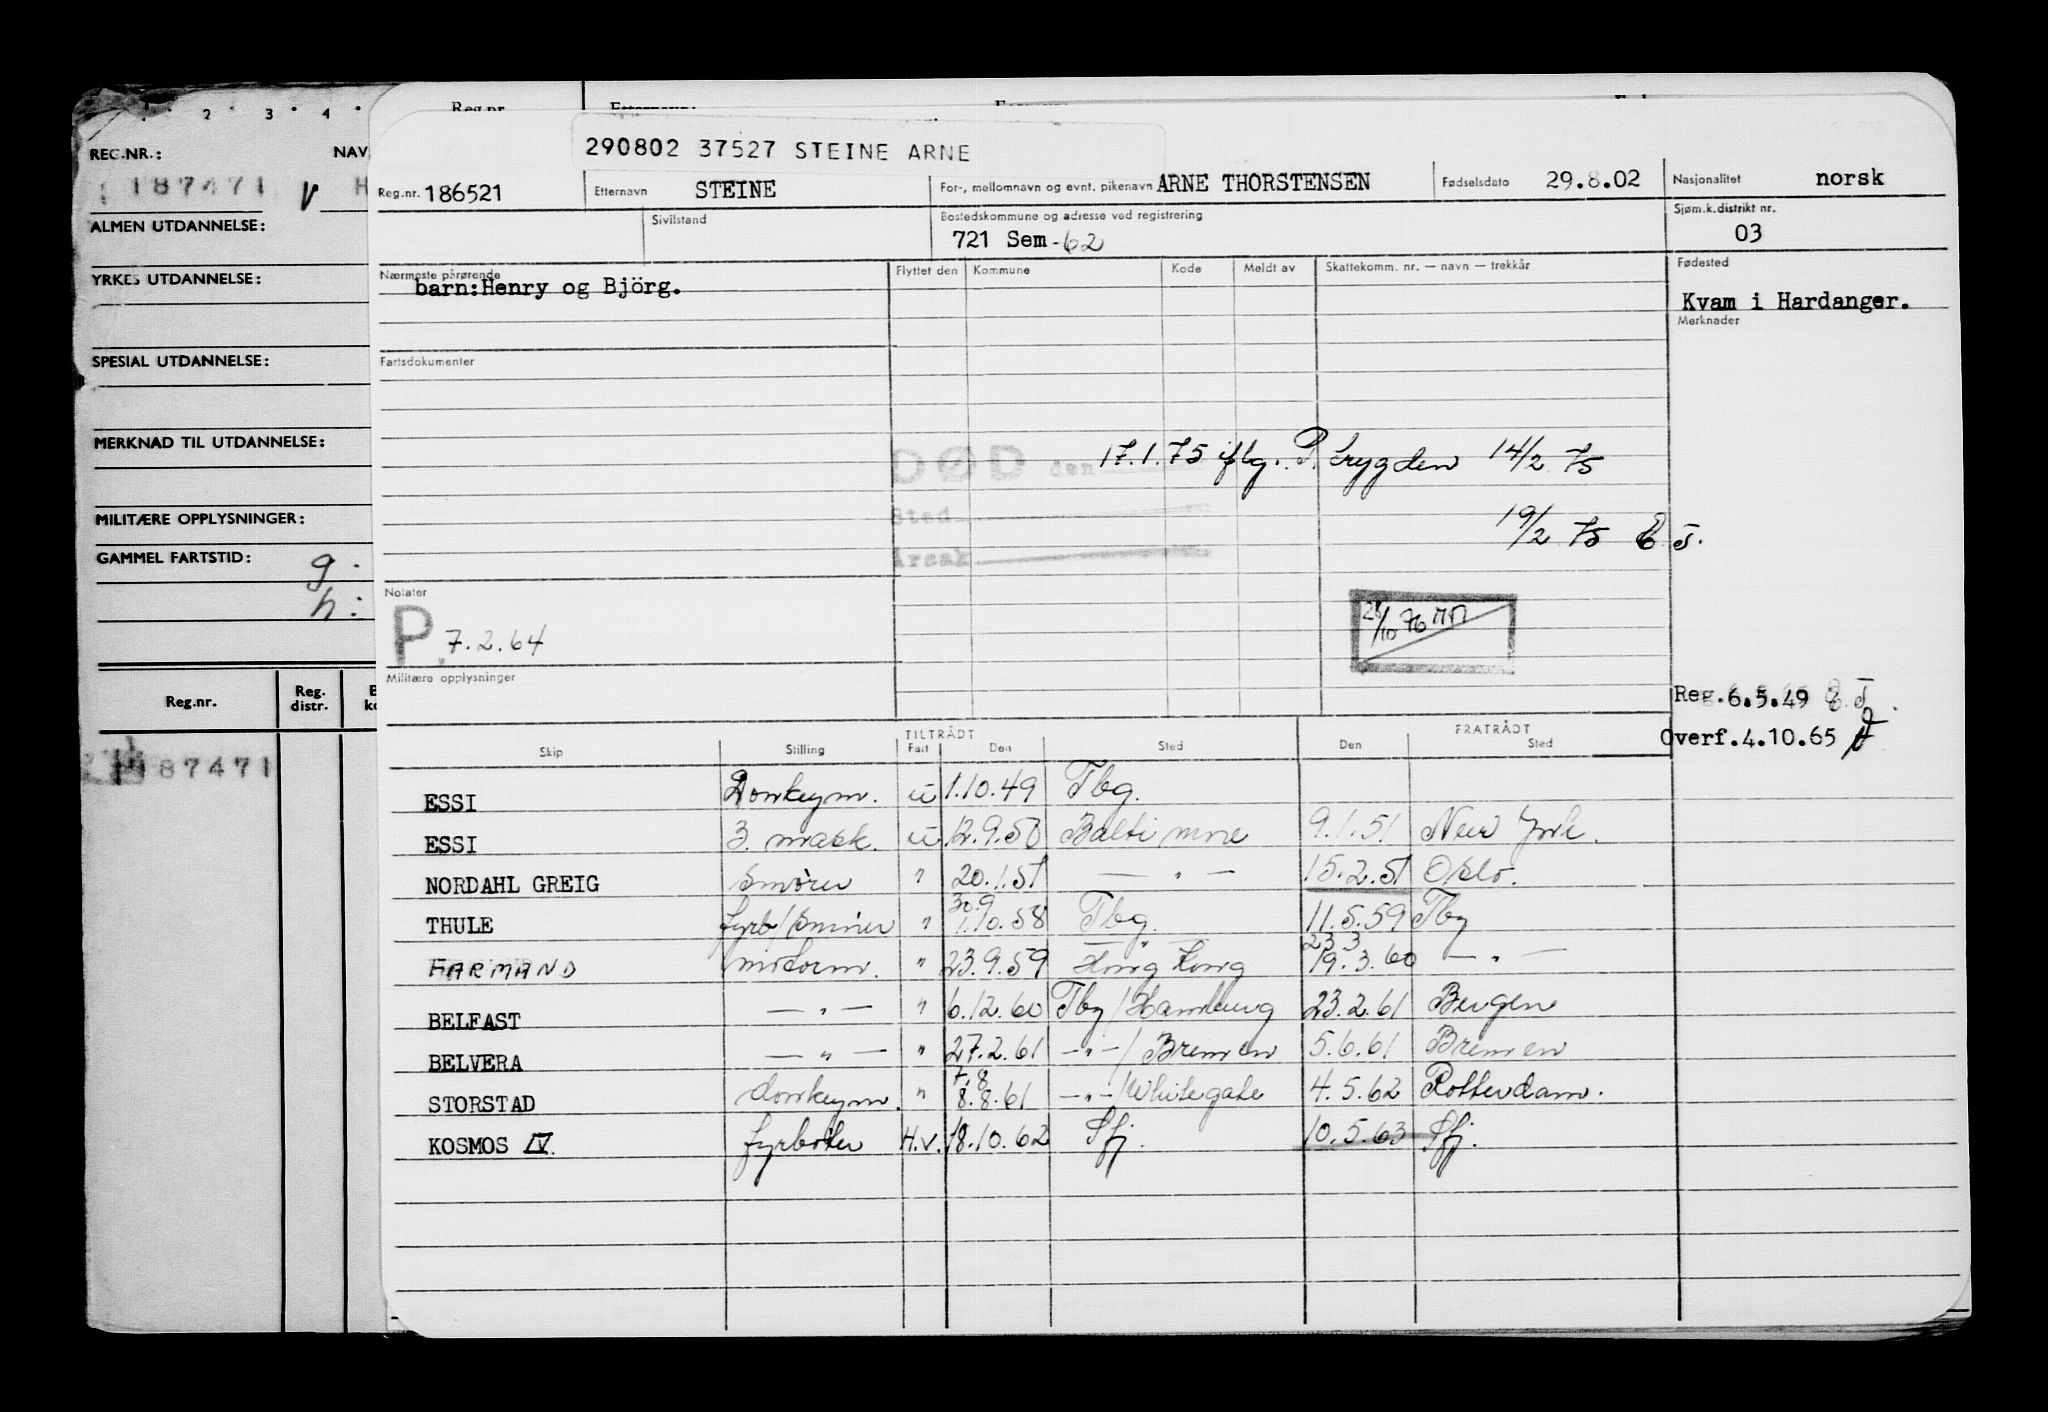 1 2 3 4
REG.NR.: NAV
187471 V H
ALMEN UTDANNELSE:
YRKES UTDANNELSE:
SPESIAL UTDANNELSE:
MERKNAD TIL UTDANNELSE:
MILITÆRE OPPLYSNINGER:
GAMMEL FARTSTID: g:
h:
Reg.nr. Reg. distr.
187471
Reg.nr. Etternavn:
290802 37527 STEINE ARNE
Reg.nr. 186521 Etternavn STEINE For-, mellomnavn og evnt. pikenavn ARNE THORSTENSEN Fødselsdato 29.8.02 Nasjonalitet norsk
Sivilstand Bostedskommune og adresse ved registrering Sjøm.k.distrikt nr.
721 Sem -62 03
Nærmeste pårørende Flyttet den Kommune Kode Meldt av Skattekomm. nr. — navn — trekkår Fødested
barn:Henry og Björg. Kvam i Hardanger.
Merknader
Fartsdokumenter
DØD den 17.1.75 iflg. P. trygden 14/2 75
Sted
19/2 75 E.T.
Årsak
Notater
P. 7.2.64
/10 76
Militære opplysninger
Reg. 6.5.49 E.T.
Overf. 4.10.65
TILTRÅDT FRATRÅDT
Skip Stilling Fart Den Sted Den Sted
ESSI Donkeym. u 1.10.49 Tbg.
ESSI 3. mask. u 12.9.50 Baltimore 9.1.51 New York.
NORDAHL GREIG Smører " 20.1.51 — " — 15.2.51 Oslo.
THULE fyrb/Smører " 30.9 1.10.58 Tbg. 11.5.59 Tbg
FARMAND motorm. " 23.9.59 — " — Hong Kong 23.3 19.3.60 — " —
BELFAST — " — " 6.12.60 Tbg / Hamburg 23.2.61 Bergen
BELVERA — " — " 27.2.61 — " — / Bremen 5.6.61 Bremen
STORSTAD donkeym. " 7.8 8.8.61 — " — / Whitegate 4.5.62 Rotterdam.
KOSMOS IV fyrbøter H.v. 18.10.62 Sfj. 10.5.63 Sfj.